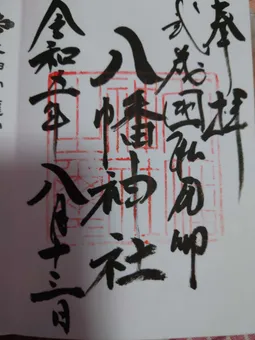 奉拝
武蔵国
八幡神社
令和五年 八月十三日